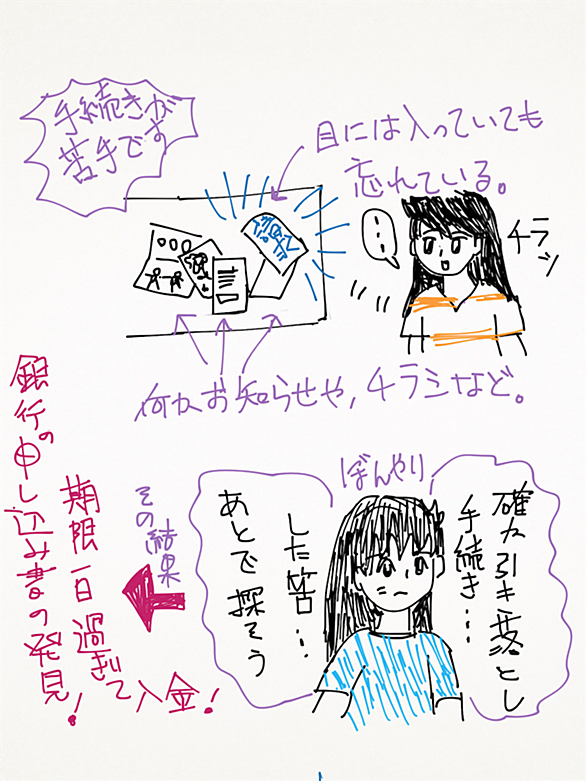 手続きが
苦手です
目には入っていても
忘れている。
チラッ
何かお知らせや,チラシなど。
ぼんやり
確か引き落とし
手続き…
した筈…
あとで探そう
その結果
期限一日過ぎて入金!
銀行の申し込み書の発見!